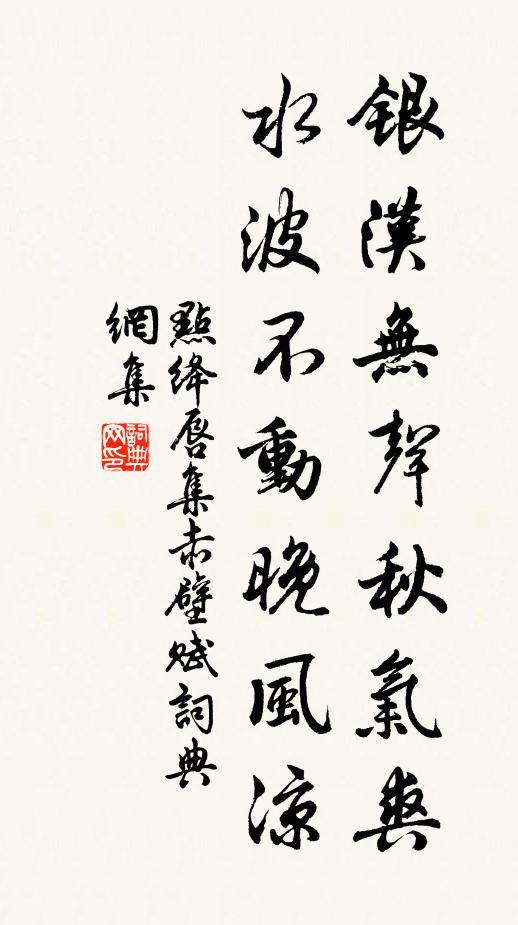 銀漢無聲秋氣爽
水波不動晚風涼
點絳唇集赤壁賦詞典
網集
詞典
网印